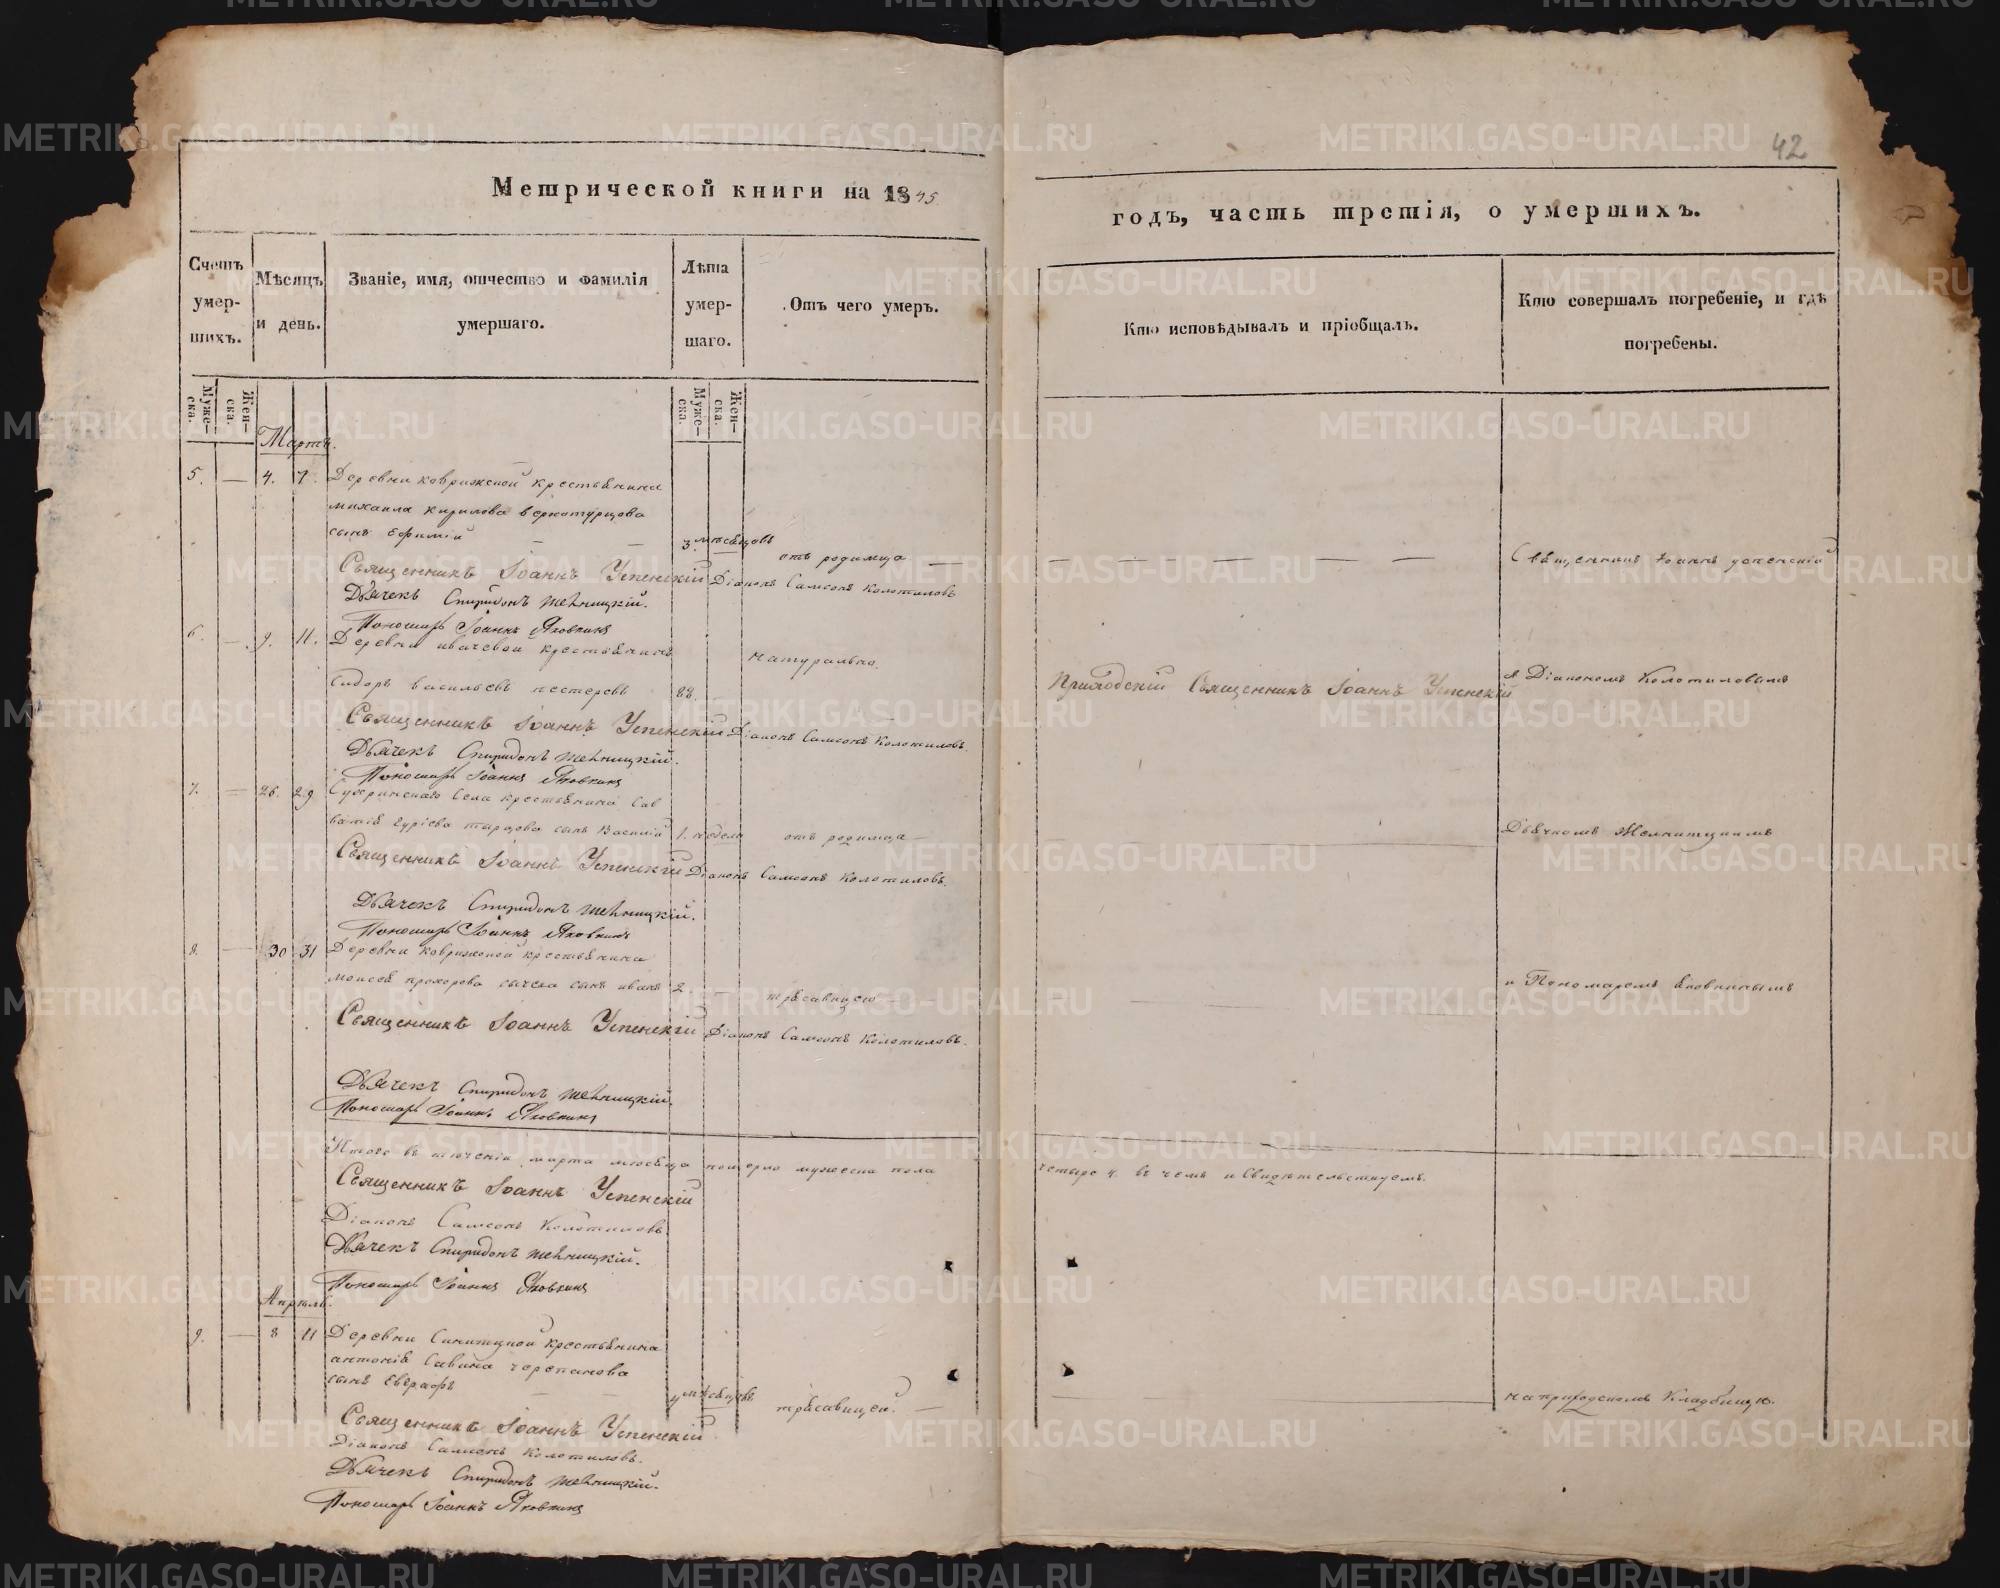 42
Метрической книги на 1845
годъ, часть третія, о умершихъ.
Счетъ умер-шихъ.
Мѣсяцъ и день.
Званіе, имя, отчество и фамилія умершаго.
Лѣта умер-шаго.
Отъ чего умеръ.
Кто исповѣдывалъ и пріобщалъ.
Кто совершалъ погребеніе, и гдѣ погребены.
Муже-ска.
Жен-ска.
Муже-ска.
Жен-ска.
Мартъ.
5. — 4. 7. Деревни Коврижской крестьянина
михаила кирилова верхотурцова
сынъ Ефимій — — 3 мѣсѣцовъ отъ родимца —
Священникъ Іоаннъ успенскій
Священникъ Іоаннъ Успенскій Діаконъ Самсонъ Колотиловъ
Дьячекъ Спиридонъ Мельницкій.
Пономарь Іоаннъ Яковкинъ
6. — 9. 11. Деревни ивачевой крестьянинъ
Сидоръ васильевъ пестеревъ 88. натурально.
Приходскій Священникъ Іоаннъ Успенскій
съ Діакономъ Колотиловымъ
Священникъ Іоаннъ Успенскій Діаконъ Самсонъ Колотиловъ.
Дьячекъ Спиридонъ Мельницкій.
Пономарь Іоаннъ Яковкинъ
7. — 26. 29 села крестьянина Сав
ватія гуріева сынъ Василій 1. недели отъ родимца —
Дьячкомъ Мелницкимъ
Священникъ Іоаннъ Успенскій Діаконъ Самсонъ Колотиловъ.
Дьячекъ Спиридонъ Мельницкій.
Пономарь Іоаннъ Яковкинъ
8. — 30 31 Деревни Коврижской крестьянина
моисея прохорова сычева сынъ иванъ 2 — трясавицею —
и Пономаремъ Яковкинымъ
Священникъ Іоаннъ Успенскій Діаконъ Самсонъ Колотиловъ.
Дьячекъ Спиридонъ Мельницкій.
Пономарь Іоаннъ Яковкинъ
Итого въ течении марта мѣсяца померло мужеска пола
четыре 4. въ чемъ и Свидѣтельствуемъ.
Священникъ Іоаннъ Успенскій
Діаконъ Самсонъ Колотиловъ
Дьячекъ Спиридонъ Мельницкій.
Пономарь Іоаннъ Яковкинъ
Апрель.
9. — 8 11 Деревни Синитцной крестьянина
антонія Савина черепанова
сынъ Евграфъ — — мѣсѣцовъ трясавицей. —
на приходскомъ Кладбищѣ.
Священникъ Іоаннъ Успенскій
Діаконъ Самсонъ Колотиловъ.
Дьячекъ Спиридонъ Мельницкій.
Пономарь Іоаннъ Яковкинъ
METRIKI.GASO-URAL.RU